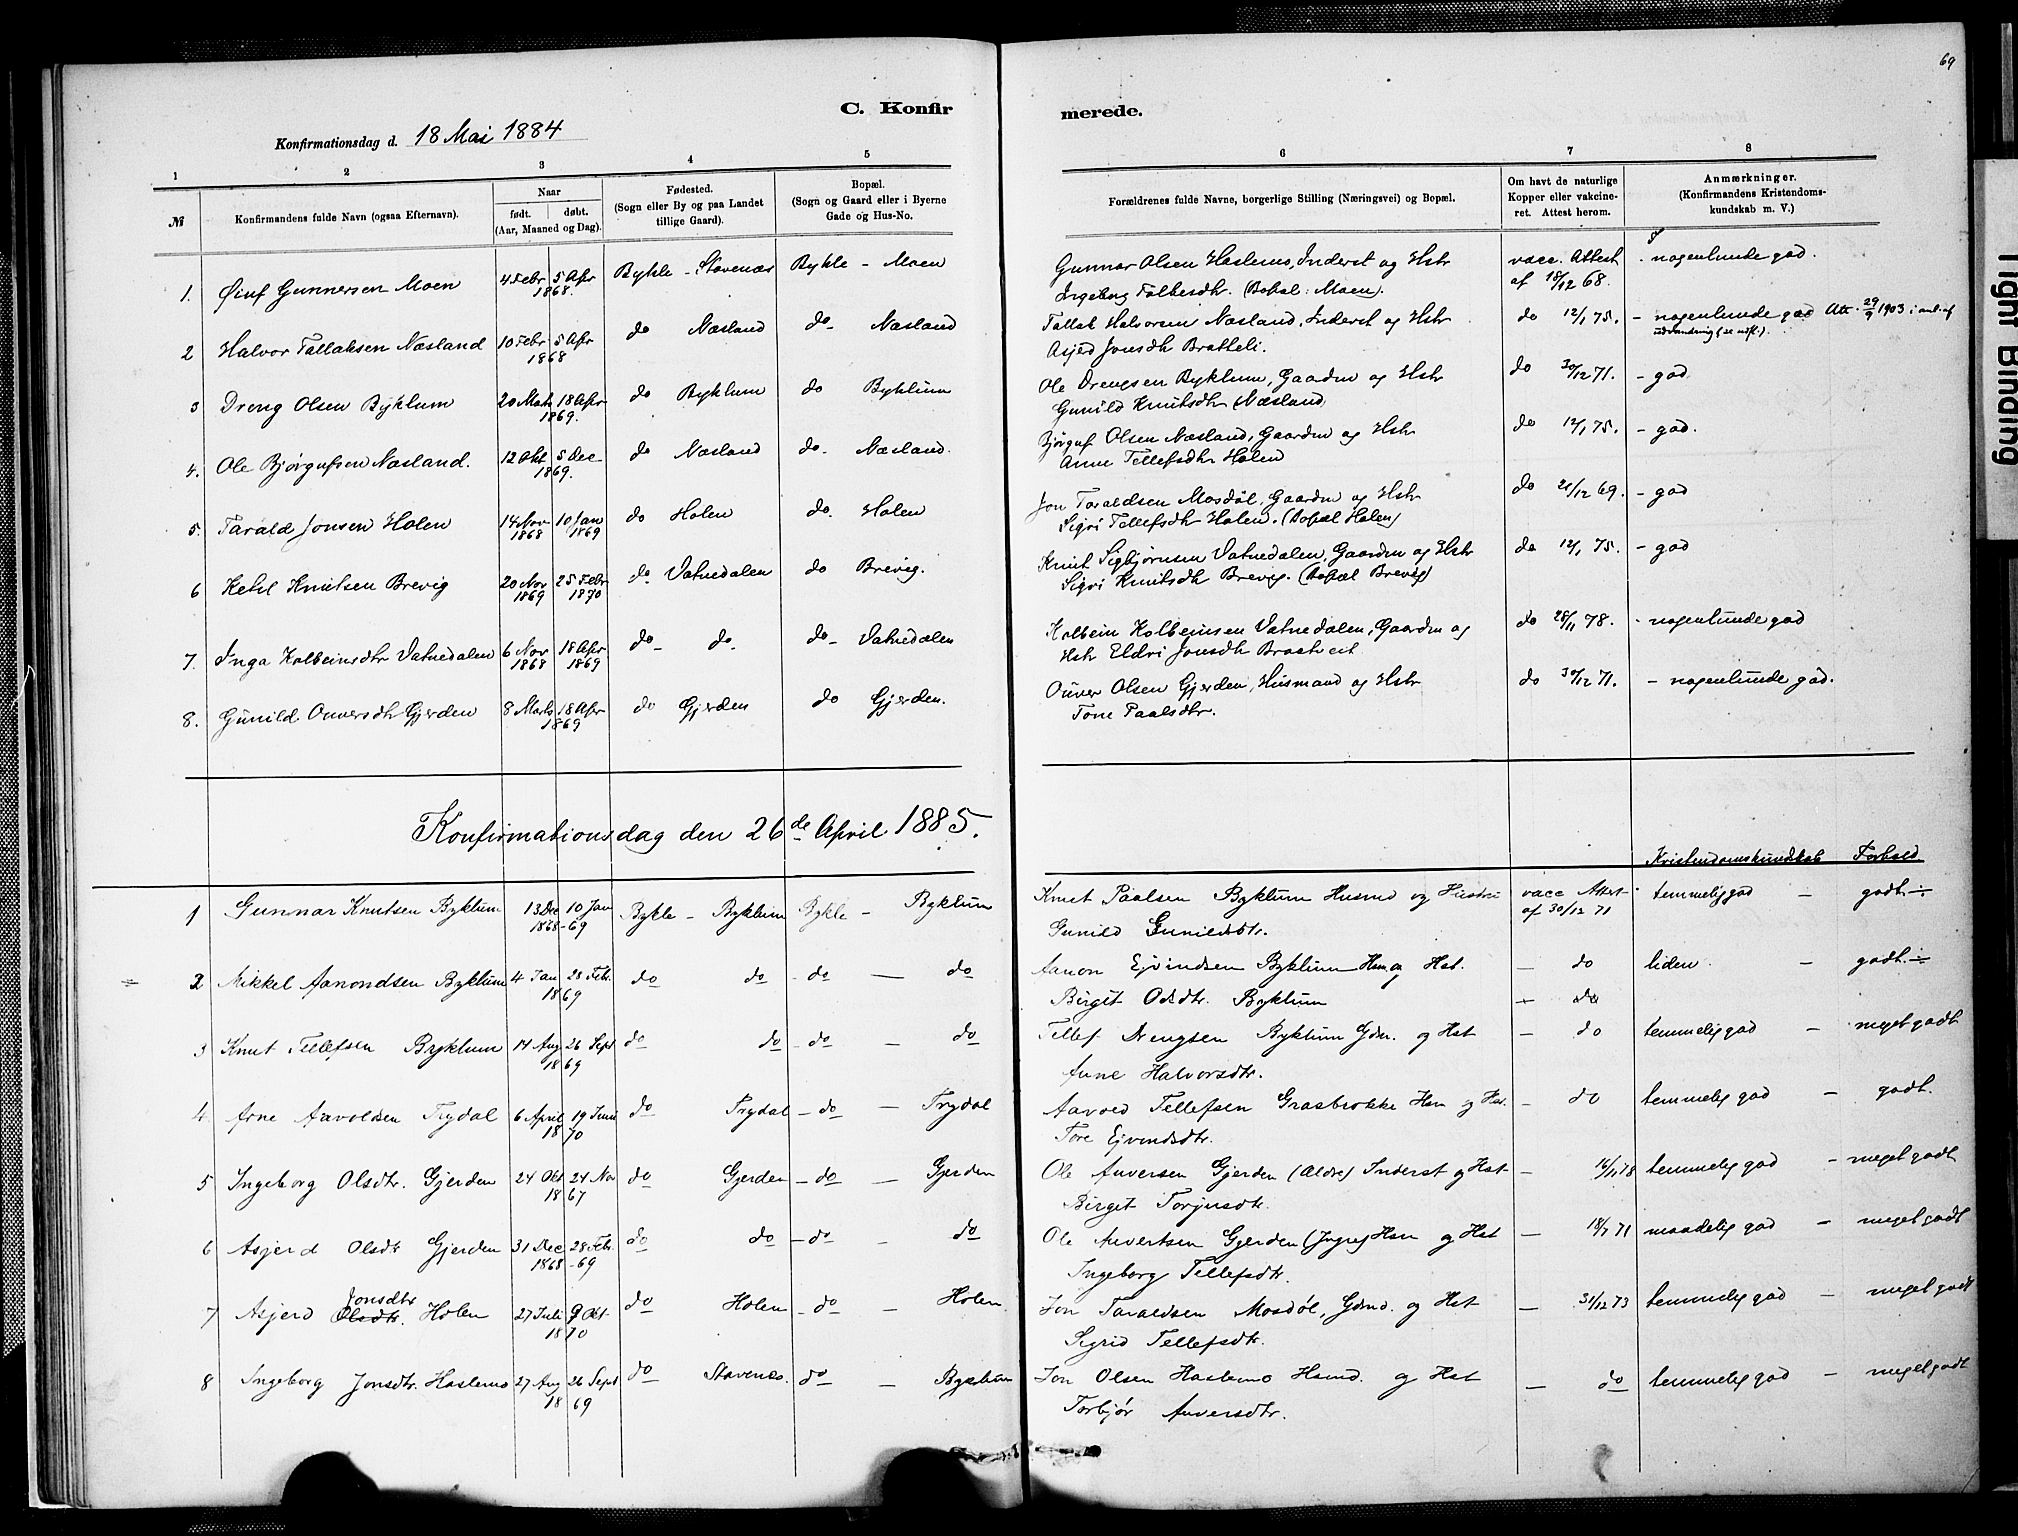 69
C. Konfir merede.
Konfirmationsdag d. 18 Mai 1884
1 2 3 4 5 6 7 8
№ Konfirmandens fulde Navn (ogsaa Efternavn). Naar født. døbt. (Aar, Maaned og Dag). Fødested. (Sogn eller By og paa Landet tillige Gaard). Bopæl. (Sogn og Gaard eller i Byerne Gade og Hus-No. Forældrenes fulde Navne, borgerlige Stilling (Næringsvei) og Bopæl. Om havt de naturlige Kopper eller vakcineret. Attest herom. Anmærkninger. (Konfirmandens Kristendomskundskab m. V.)
1. Gunnersen Moen 4 Febr 5 Apr 1868. Bykle - Stavenæs Bykle - Moen Gunnar Olsen Haslemo, Inderst og Hstr vacc. Attest - nogenlunde god.
Ingeborg (Bopæl: Moen). af 18/12 68.
2 Halvor Tallaksen Næsland 10 Febr 5 Apr 1868 do Næsland do - Næsland Tallak Halvorsen Næsland, Inderst og Hstr do 12/1 75. - nogenlunde god Att. 29/9 1903 i anl. af
Asjerd Jonsdtr Bratteli. udvandring
3 Dreng Olsen Byklum 20 Mars 18 Apr 1869. do Byklum do Byklum Ole Drengsen Byklum, Gaardm og Hstr do 30/12 71. - god
Gunild Knutsdtr Næsland
4. Ole Bjørgufsen Næsland. 12 Okt 5 Dec 1869. do Næsland do. Næsland. Bjørguf Olsen Næsland, Gaardm og Hstr do 12/1 75. - god.
Anne Tellefsdtr Holen
5. Tarald Jonsen Holen 14 Nov 1868 10 Jan 1869 do Holen do. Holen Jon Taraldsen Mosdøl, Gaardm og Hstr do 21/12 69. - god
Sigri Tellefsdtr Holen. (Bopæl Holen)
6 Ketil Knutsen Brevig 20 Nov 1869 25 Febr 1870 do. Vatnedalen do Brevig. Knut Sigbjørnsen Vatnedalen, Gaardm og Hstr do 12/1 75. - god
Sigri Knutsdtr Brevig. (Bopæl Brevig)
7. Inga Kolbeinsdtr Vatnedalen 6 Nov 1868 18 Apr 1869 do - do. do - Vatnedalen Kolbein Kolbeinsen Vatnedalen, Gaardm og do 28/11 78. - nogenlunde god
Hstr Eldri Jonsdtr Bratteit
8. Gunild Ouversdtr Gjerden 8 Marts 18 Apr 1869 do Gjerden do Gjerden. Ouver Olsen Gjerden, Husmand og Hstr do 30/12 71. - nogenlunde god.
Tone Paalsdtr.
Konfirmationsdag den 26de April 1885.
Kristendomskundskab Forhold
1 Gunnar Knutsen Byklum 13 Dec 10 Jan 1868-69 Bykle - Byklum Bykle - Byklum Knut Paalsen Byklum Husmd og Hustru vacc Attest temmelig god - godt
Gunild Gunildsdtr. af 30/12 71
2 Mikkel Aamondsen Byklum 4 Jan 28 Feb. 1869 do do - do - do Aanon Ejvindsen Byklum Hsm og Hst. - do liden. - godt
Birgit Oldtr. Byklum - do
3 Knut Tellefsen Byklum 14 Aug 26 Sept 1869 do do - do - do Tellef Drengsen Byklum Gdm. og Hst - do temmelig god - meget godt
Anne Halvorsdtr.
4 Arne Aavoldsen Trydal 6 April 19 Juni 1870 do Trydal - do - Trydal Aavold Tellefsen Grasbrokke Hsm og Hst. - do temmelig god - godt.
Tore Ejvindsdtr.
5 Ingeborg Olsdtr. Gjerden 24 Okt 24 Nov 1867 do Gjerden - do - Gjerden Ole Auversen Gjerden (Aldre) Inderst og Hst - 16/11 78 temmelig god - meget godt
Birget Torjusdtr.
6 Asjerd Olsdtr Gjerden 31 Dec 28 Feb. 1868-69 do do - do - do Ole Auvertsen Gjerden (Yngre) Hsm og Hst - 18/7 71 maadelig god - meget godt
Ingeborg Tellefsdtr.
7 Asjerd Olsdtr. Jonsdtr Holen 27 Juli 9 Okt 1870 do Holen - do - Holen. Jon Taraldsen Mosdøl, Gdmd. og Hst - 31/12 73 temmelig god - meget godt
Sigrid Tellefsdtr.
8 Ingeborg Jonsdtr. Haslemo 27 Aug 26 Sept 1869 do Stavenes. do - Byklum Jon Olsen Haslemo Hsmd. og Hst - do temmelig god - meget godt
Torbjør Auversdtr.
Tight Binding